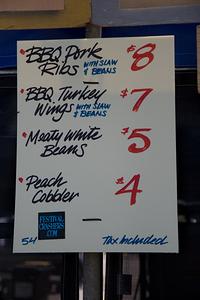 BBQ Pork
Ribs WITH SLAW & BEANS $8
BBQ Turkey
Wings WITH SLAW & BEANS $7
Meaty White
Beans $5
Peach
Cobbler $4
FESTIVAL
CRASHERS
.COM
54 Tax Included